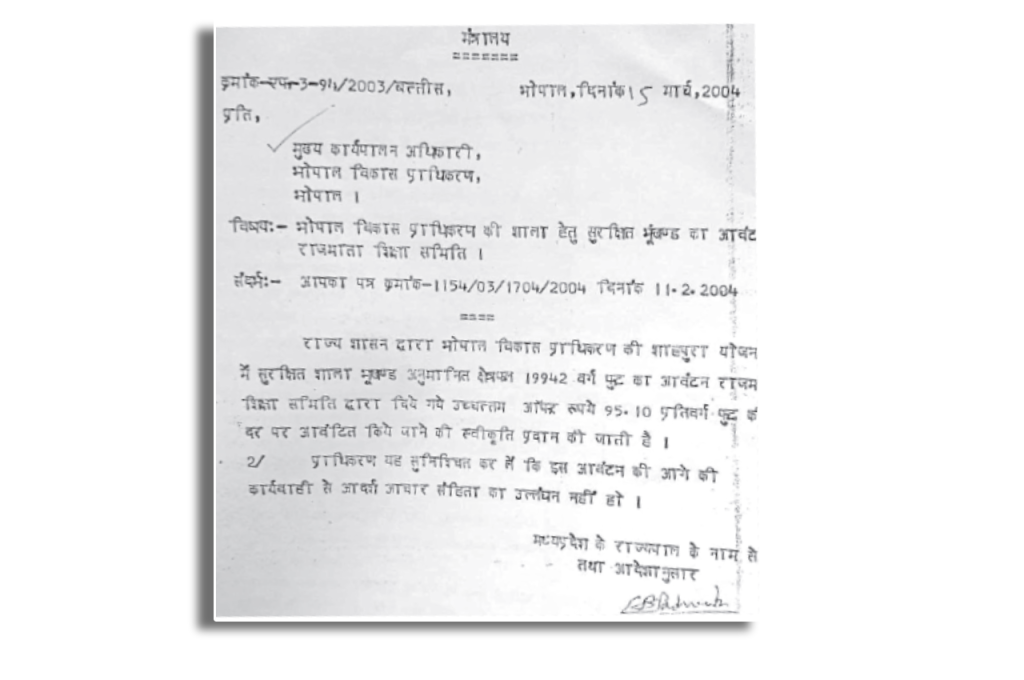 मंत्रालय
=======
क्रमांक-एफ-3-94/2003/बत्तीस, भोपाल,दिनांक 15 मार्च,2004
प्रति,
मुख्य कार्यपालन अधिकारी,
भोपाल विकास प्राधिकरण,
भोपाल ।
विषय:- भोपाल विकास प्राधिकरण की शाला हेतु सुरक्षित भूखण्ड का आवंट
राजमाता शिक्षा समिति ।
संदर्भ:- आपका पत्र क्रमांक-1154/03/1704/2004 दिनांक 11.2.2004
====
राज्य शासन द्वारा भोपाल विकास प्राधिकरण की शाहपुरा योजन
में सुरक्षित शाला भूखण्ड अनुमानित क्षेत्रफल 19942 वर्ग फुट का आवंटन राजम
शिक्षा समिति द्वारा दिये गये उच्चतम ऑफर रूपये 95.10 प्रतिवर्ग फुट की
दर पर आवंटित किये जाने की स्वीकृति प्रदान की जाती है ।
2/ प्राधिकरण यह सुनिश्चित कर लें कि इस आवंटन की आगे की
कार्यवाही से आदर्श आचार संहिता का उल्लंघन नहीं हो ।
मध्यप्रदेश के राज्यपाल के नाम से
तथा आदेशानुसार